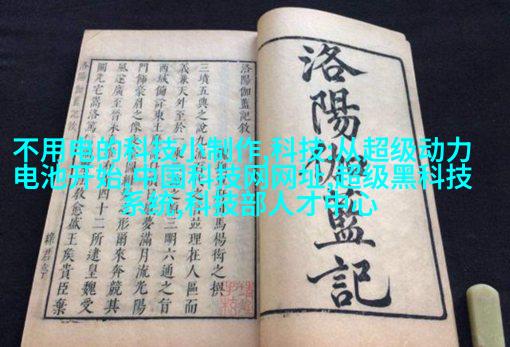 不用电的科技小制作,科技:从超级动力
电池开始,中国科技网网址,超级黑科技
系统,科技部人才中心
洛陽伽藍記
洛陽伽藍記敘
馬楊衒之撰
三墳五典之說九流
並理在人區而
義兼天外至於一
三明六通之旨
西域備詳東土
夢滿月流光陽
門飾豪眉之像
形爾來奔競其
風遂廣至晉永
四十二所逮皇魏受
圖光宅嵩洛篤
教愈盛王侯貴臣棄